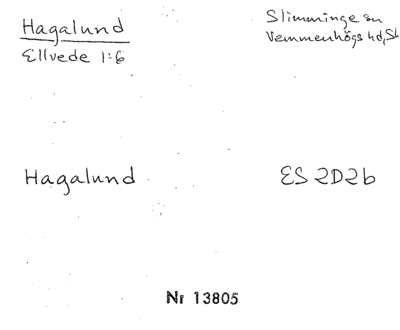 Hagalund
Ellvede 1:6
Slimminge sn
Vemmenhögs hd, Sk
Hagalund
ES 2D2b
Nr 13805